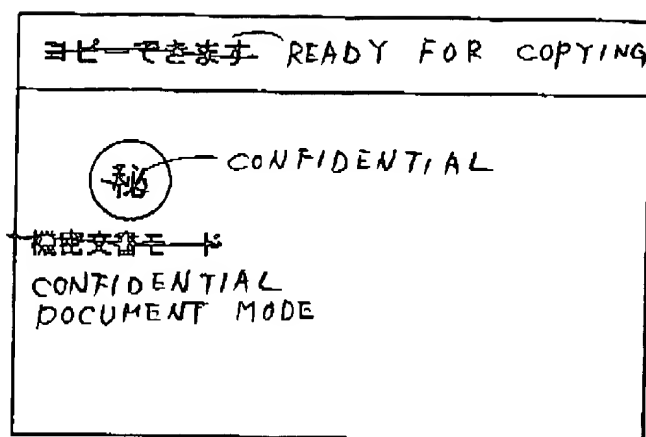 コピーできます READY FOR COPYING
秘 CONFIDENTIAL
機密文書モード
CONFIDENTIAL
DOCUMENT MODE